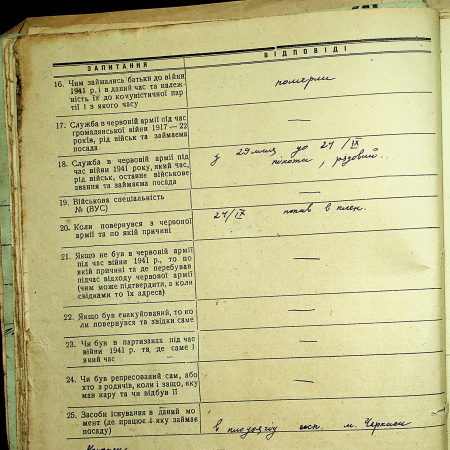 ЗАПИТАННЯ ВІДПОВІДІ
16. Чим займались батьки до війни
1941 р. і в даний час та належ-
ність їх до комуністичної пар
тії і з якого часу
померли
17. Служба в червоній армії під час
громадянської війни 1917—22
років, рід військ та займаєма
посада
—
18. Служба в червоній армії під
час війни 1941 року, який час,
рід військ, останнє військове
звання та займаєма посада
з 29 до 24/IX
піхота, рядовий
19. Військова спеціяльність
№ (ВУС)
20. Коли повернувся з червоної
армії та по якій причині
24/IX попав в плен.
21. Якщо не був в червоній армії
під час війни 1941 р., то по
якій причині та де перебував
підчас відходу червоної армії
(чим може підтвердити, а коли
свідками то їх адреса)
—
22. Якщо був евакуйований, то ко
ли повернувся та звідки саме
—
23. Чи був в партизанах під час
війни 1941 р. та, де саме і
який час
—
24. Чи був репресований сам, або
хто з родичів, коли і защо, яку
мав кару та чи відбув її
—
25. Засоби існування в даний мо
мент (де працює і яку займає
посаду)
в госп. м. Черкаси